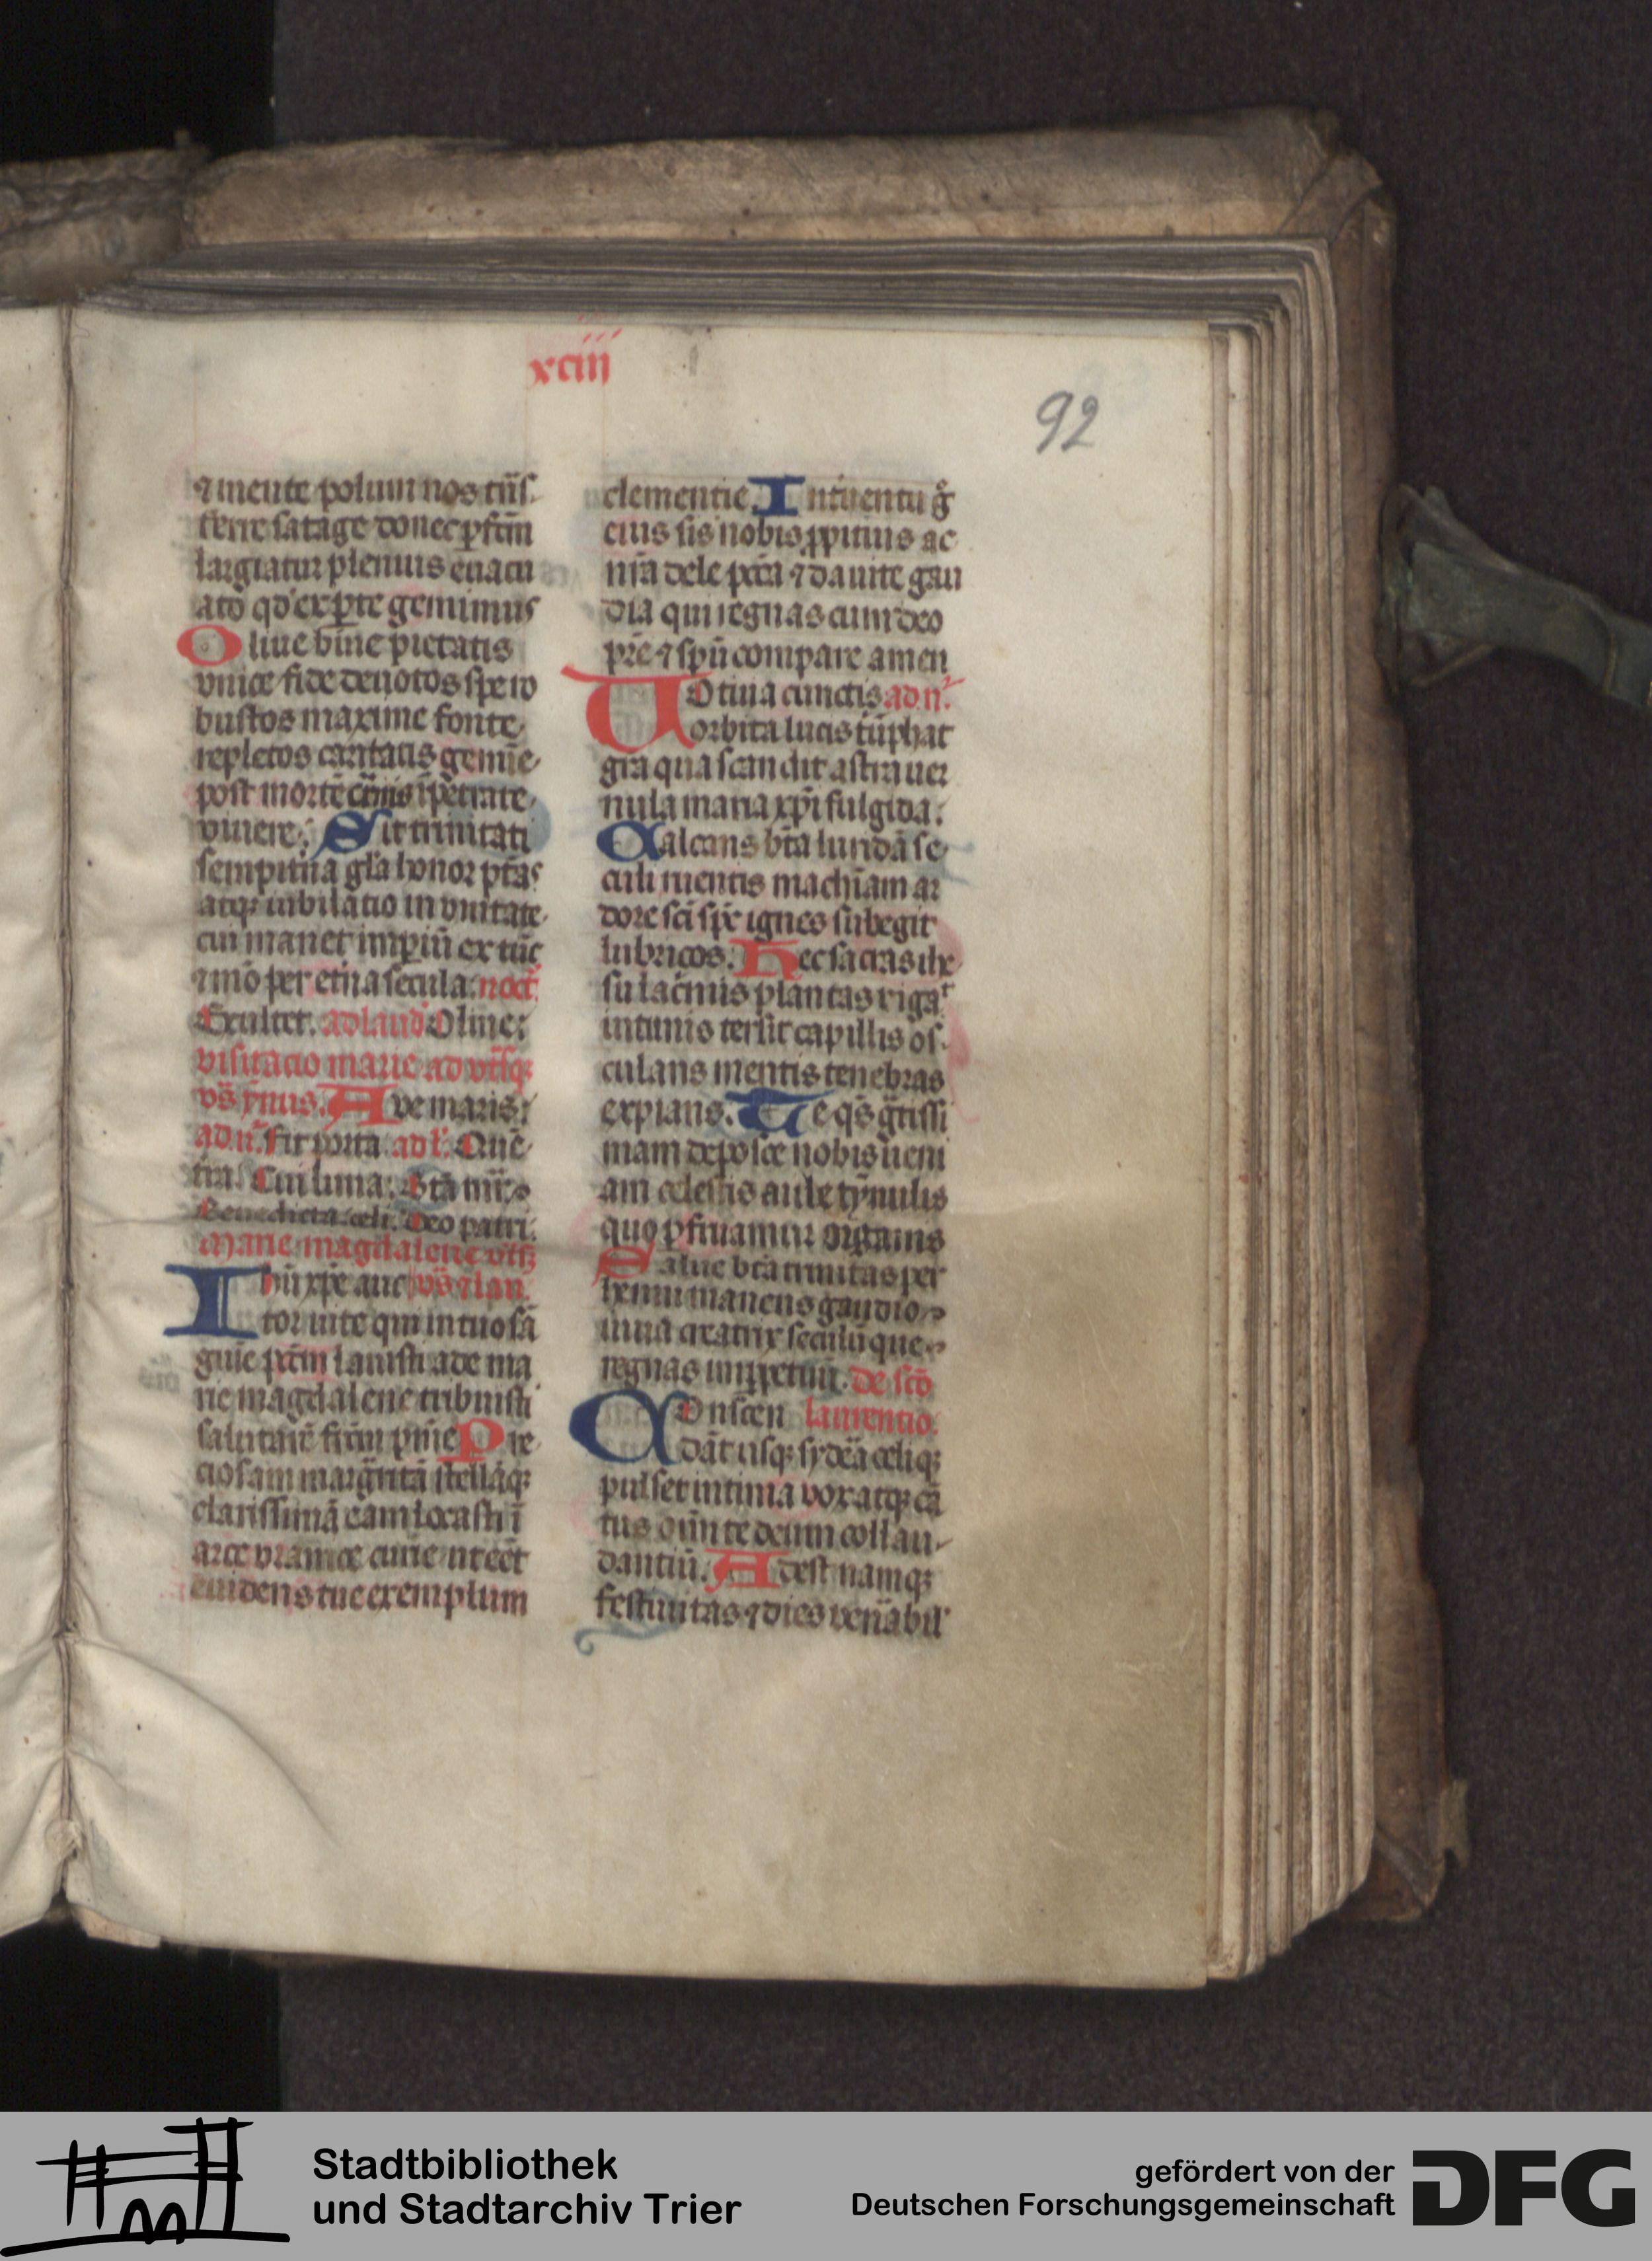 xciii
92
⁊ mente polum nos tn̄s
ferre satage donec ꝑfc̄m
largiatur plenius euacu
ato qd' ex ꝑte gemimus
Oliue bine pietatis
vnice fide deuotos spe ro
bustos maxime fonte
repletos caritatis
post mortē
viuere. Sit trinitati
sempit̄na gl̄a honor ptā s
atqꝫ iubilatio in vnitate
cui manet imꝑiū ex tūc
⁊ mō per et̄na secula. noct̄
Exultet. ad laud Oliue:
visitacio marie ad vt̄sqꝫ
vs̄ ymus. Aue maris:
ad n̄. fit porta ad l'. Quē
t̄ra. Cui luna. Btā mr̄.
Benedicta celi. Deo patri.
Marie magdalene vt̄sqꝫ
Ihū xp̄e auc vs̄ ⁊ lau.
tor uite qui in tuo sā
guīe pctm̄ lauisti ade ma
rie magdalene tribuisti
salutarē fr̄m pn̄ie Pre
ciosam marḡritā stellāqꝫ
clarissimā eam locasti ī
arce vranice curie ut eēt
euidens tue exemplum
clementie. Intuentu gͦ
eius sis nobis ꝓpitius ac
nr̄a dele pctā ⁊ da uite gau
dia qui regnas cum deo
pr̄e ⁊ spū compare amen
Uotiua cunctis ad n̄
orbita lucis tūphat
gr̄a qua scandit astra uer
nula maria xp̄i fulgida.
Calcans bt̄a lurida se
culi mentis machīam ar
dore sc̄i sp̄c ignes subegit
lubricos. Hec sacras ihe
su lac̄mis plantas rigat
intimis tersit capillis os
culans mentis tenebras
expians. Te qs̄ gr̄tissi
mam deposce nobis ueni
am celestis aule tymulis
quo ꝑfruamur organis
Salue bt̄a trinitas per
henni manens gaudio
una creatrix seculū que
regnas imꝑpetuū. de sc̄o
Conscen laurentio.
dāt usqꝫ syde᷑a celiqꝫ
pulset intima vox atqꝫ cā
tus om̄ te deum collau-
dantiū. Adest namqꝫ
festiuitas ⁊ dies ven̄abil'
Stadtbibliothek
und Stadtarchiv Trier
gefördert von der
Deutschen Forschungsgemeinschaft
DFG